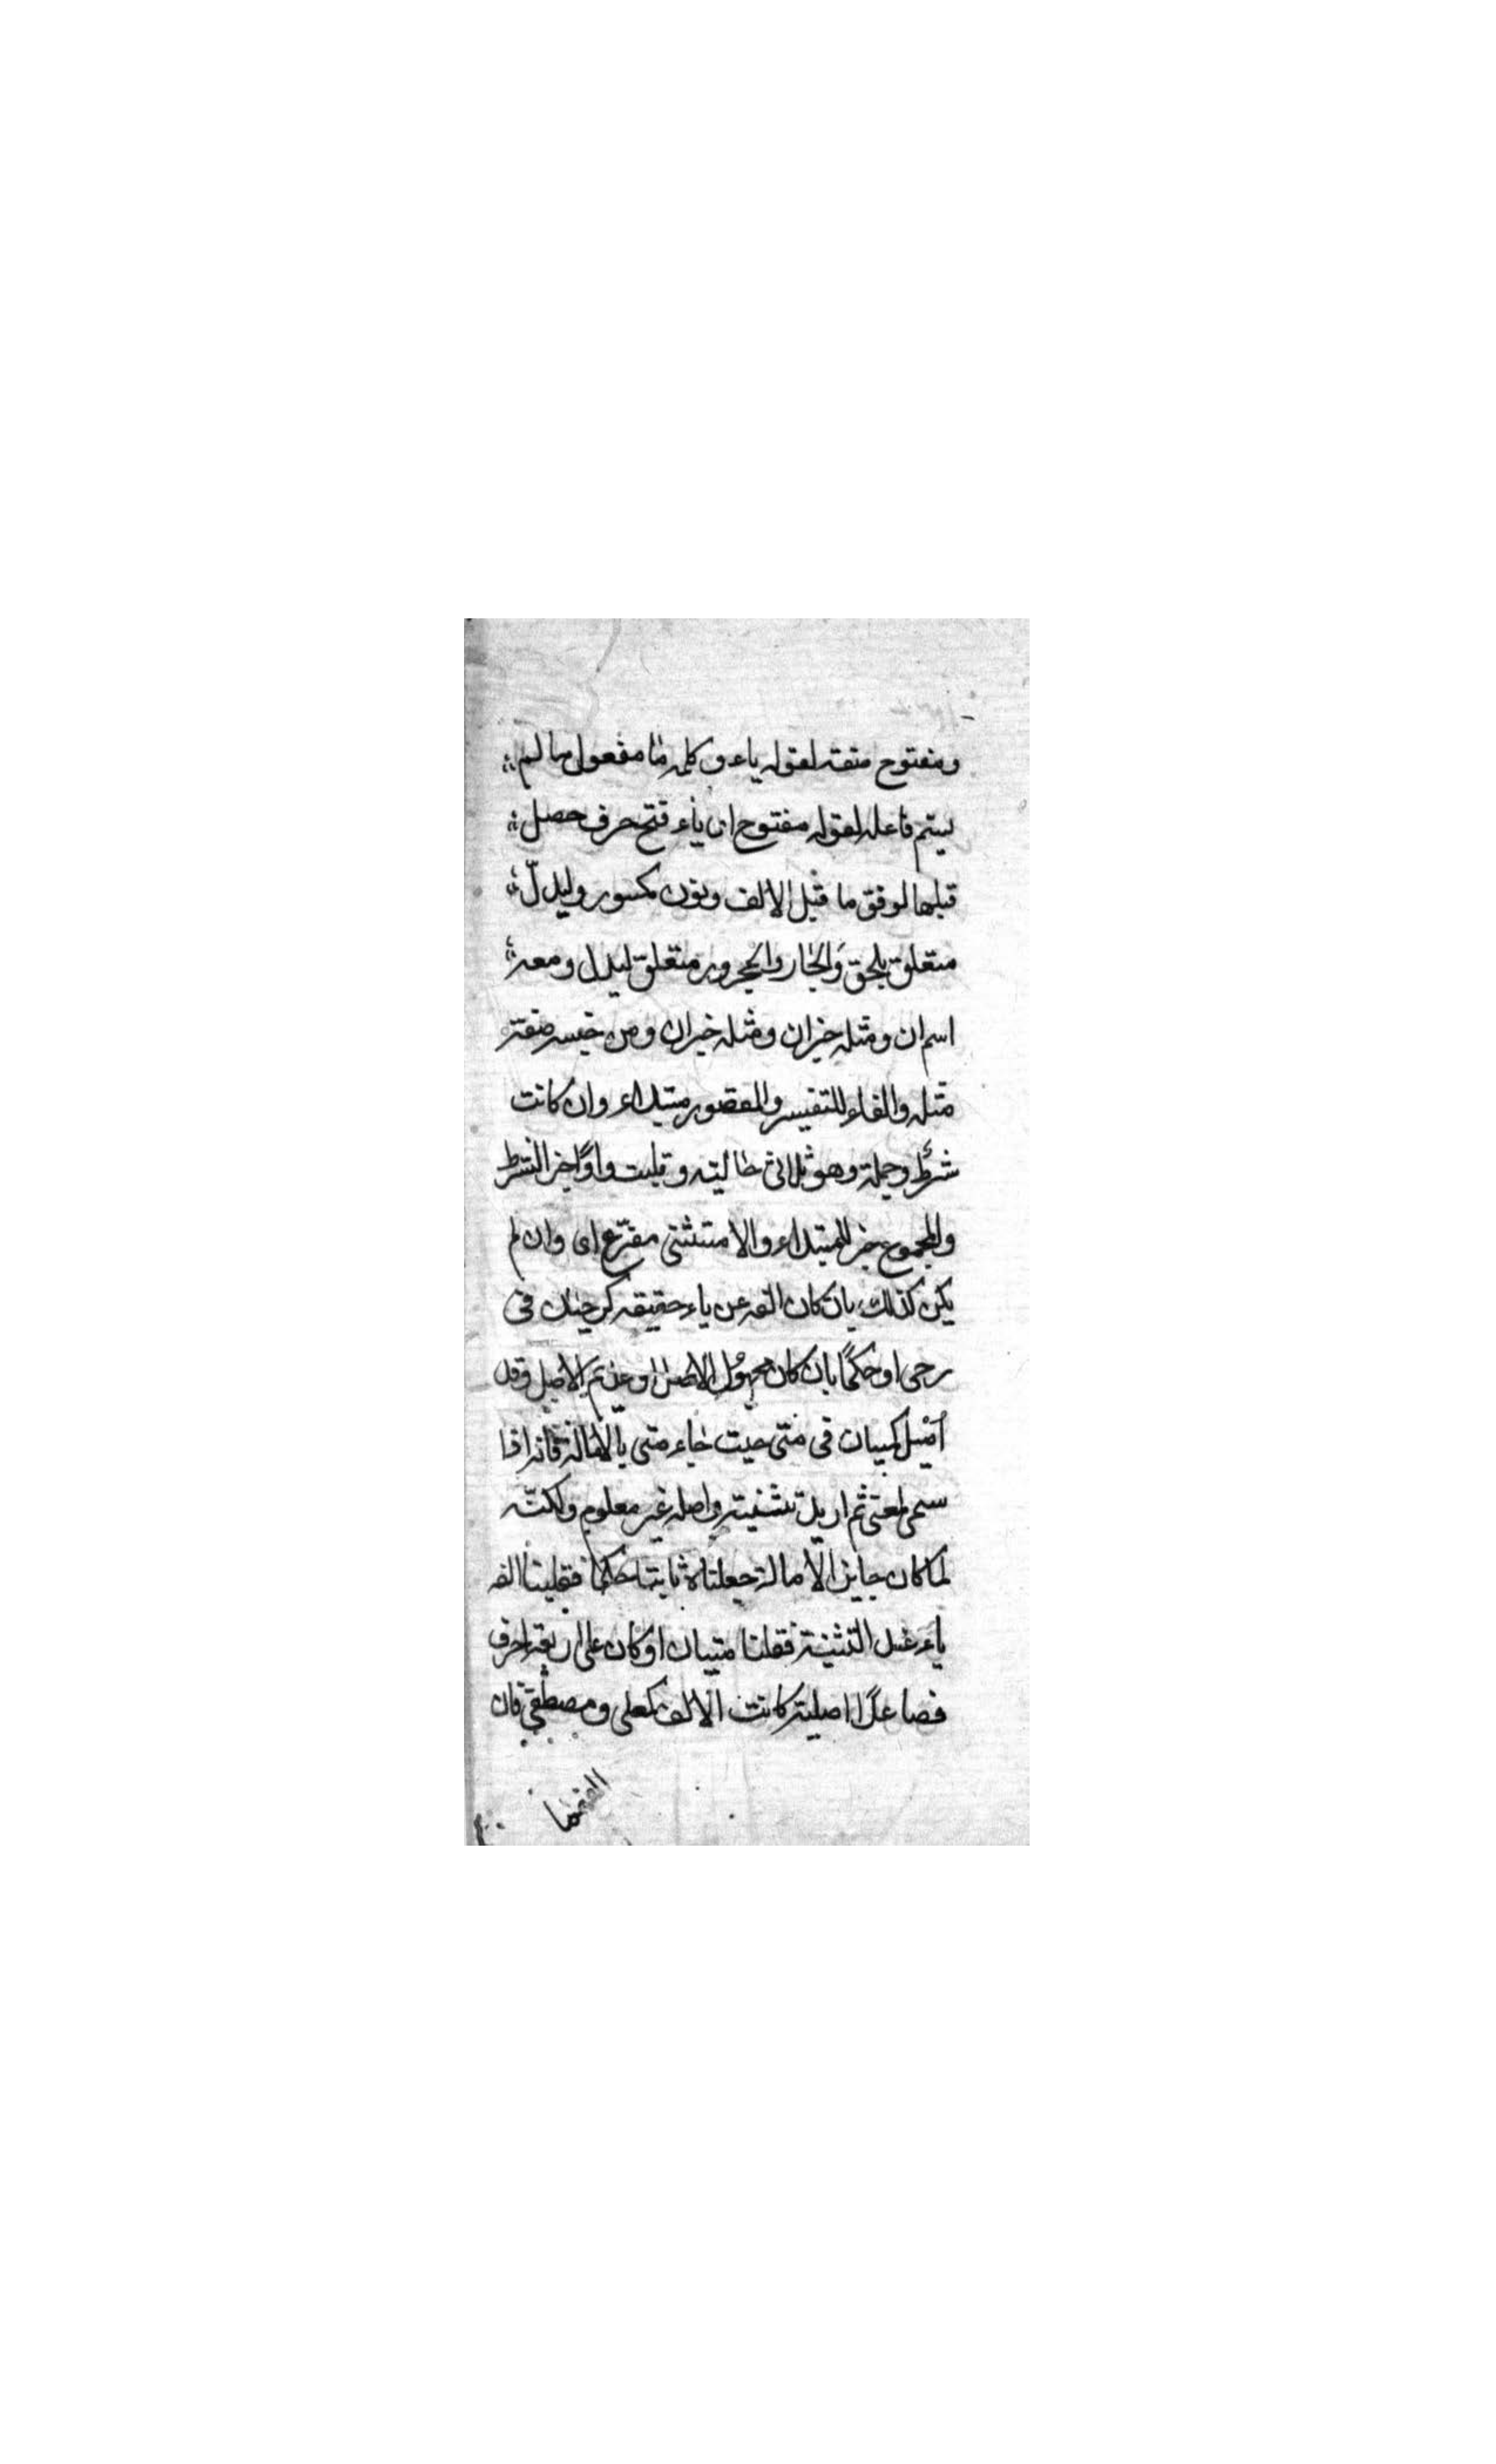 ومفتوح صفته لقوله ياء وكلمه ما مفعول ما لم
يستم فاعله لقوله مفتوح اى ياء فتح حرف حصل
قبلها لوفق ما قبل الالف ونون مكسور وليدلّ
متعلق يلحق والجار والمجرور متعلق ليدل ومعه
اسم ان ومثله خبران ومثله خبران ومن جنسه صفته
مثله والفاء للتفيسر والمقصور مبتداء وان كانت
شرط وجملة وهو ثلاثى حاليته وقلبت واوًا جزا الشرط
والمجموع خبر للمبتداء والا مستثنى مفرّع اى وان لم
يكن كذلك بان كان الفه عن ياء حقيقه كرحيان فى
رحى او حكمًا بان كان مجهول الاصل او عديم الاصل وقد
اُميل كميبان فى متى حيث جاء متى بالامالة فانه اذا
سمى بمتى ثم اريد تثنيته واصله غير معلوم ولكنّه
لما كان جايز الامالة جعلناه ثابتا حكما فقلبنا الفه
ياء عند التثنية فقلنا متيان او كان على اربعة احرف
فصاعدًا اصلية كانت الالف كمعلى ومصطفى فان
الفهما